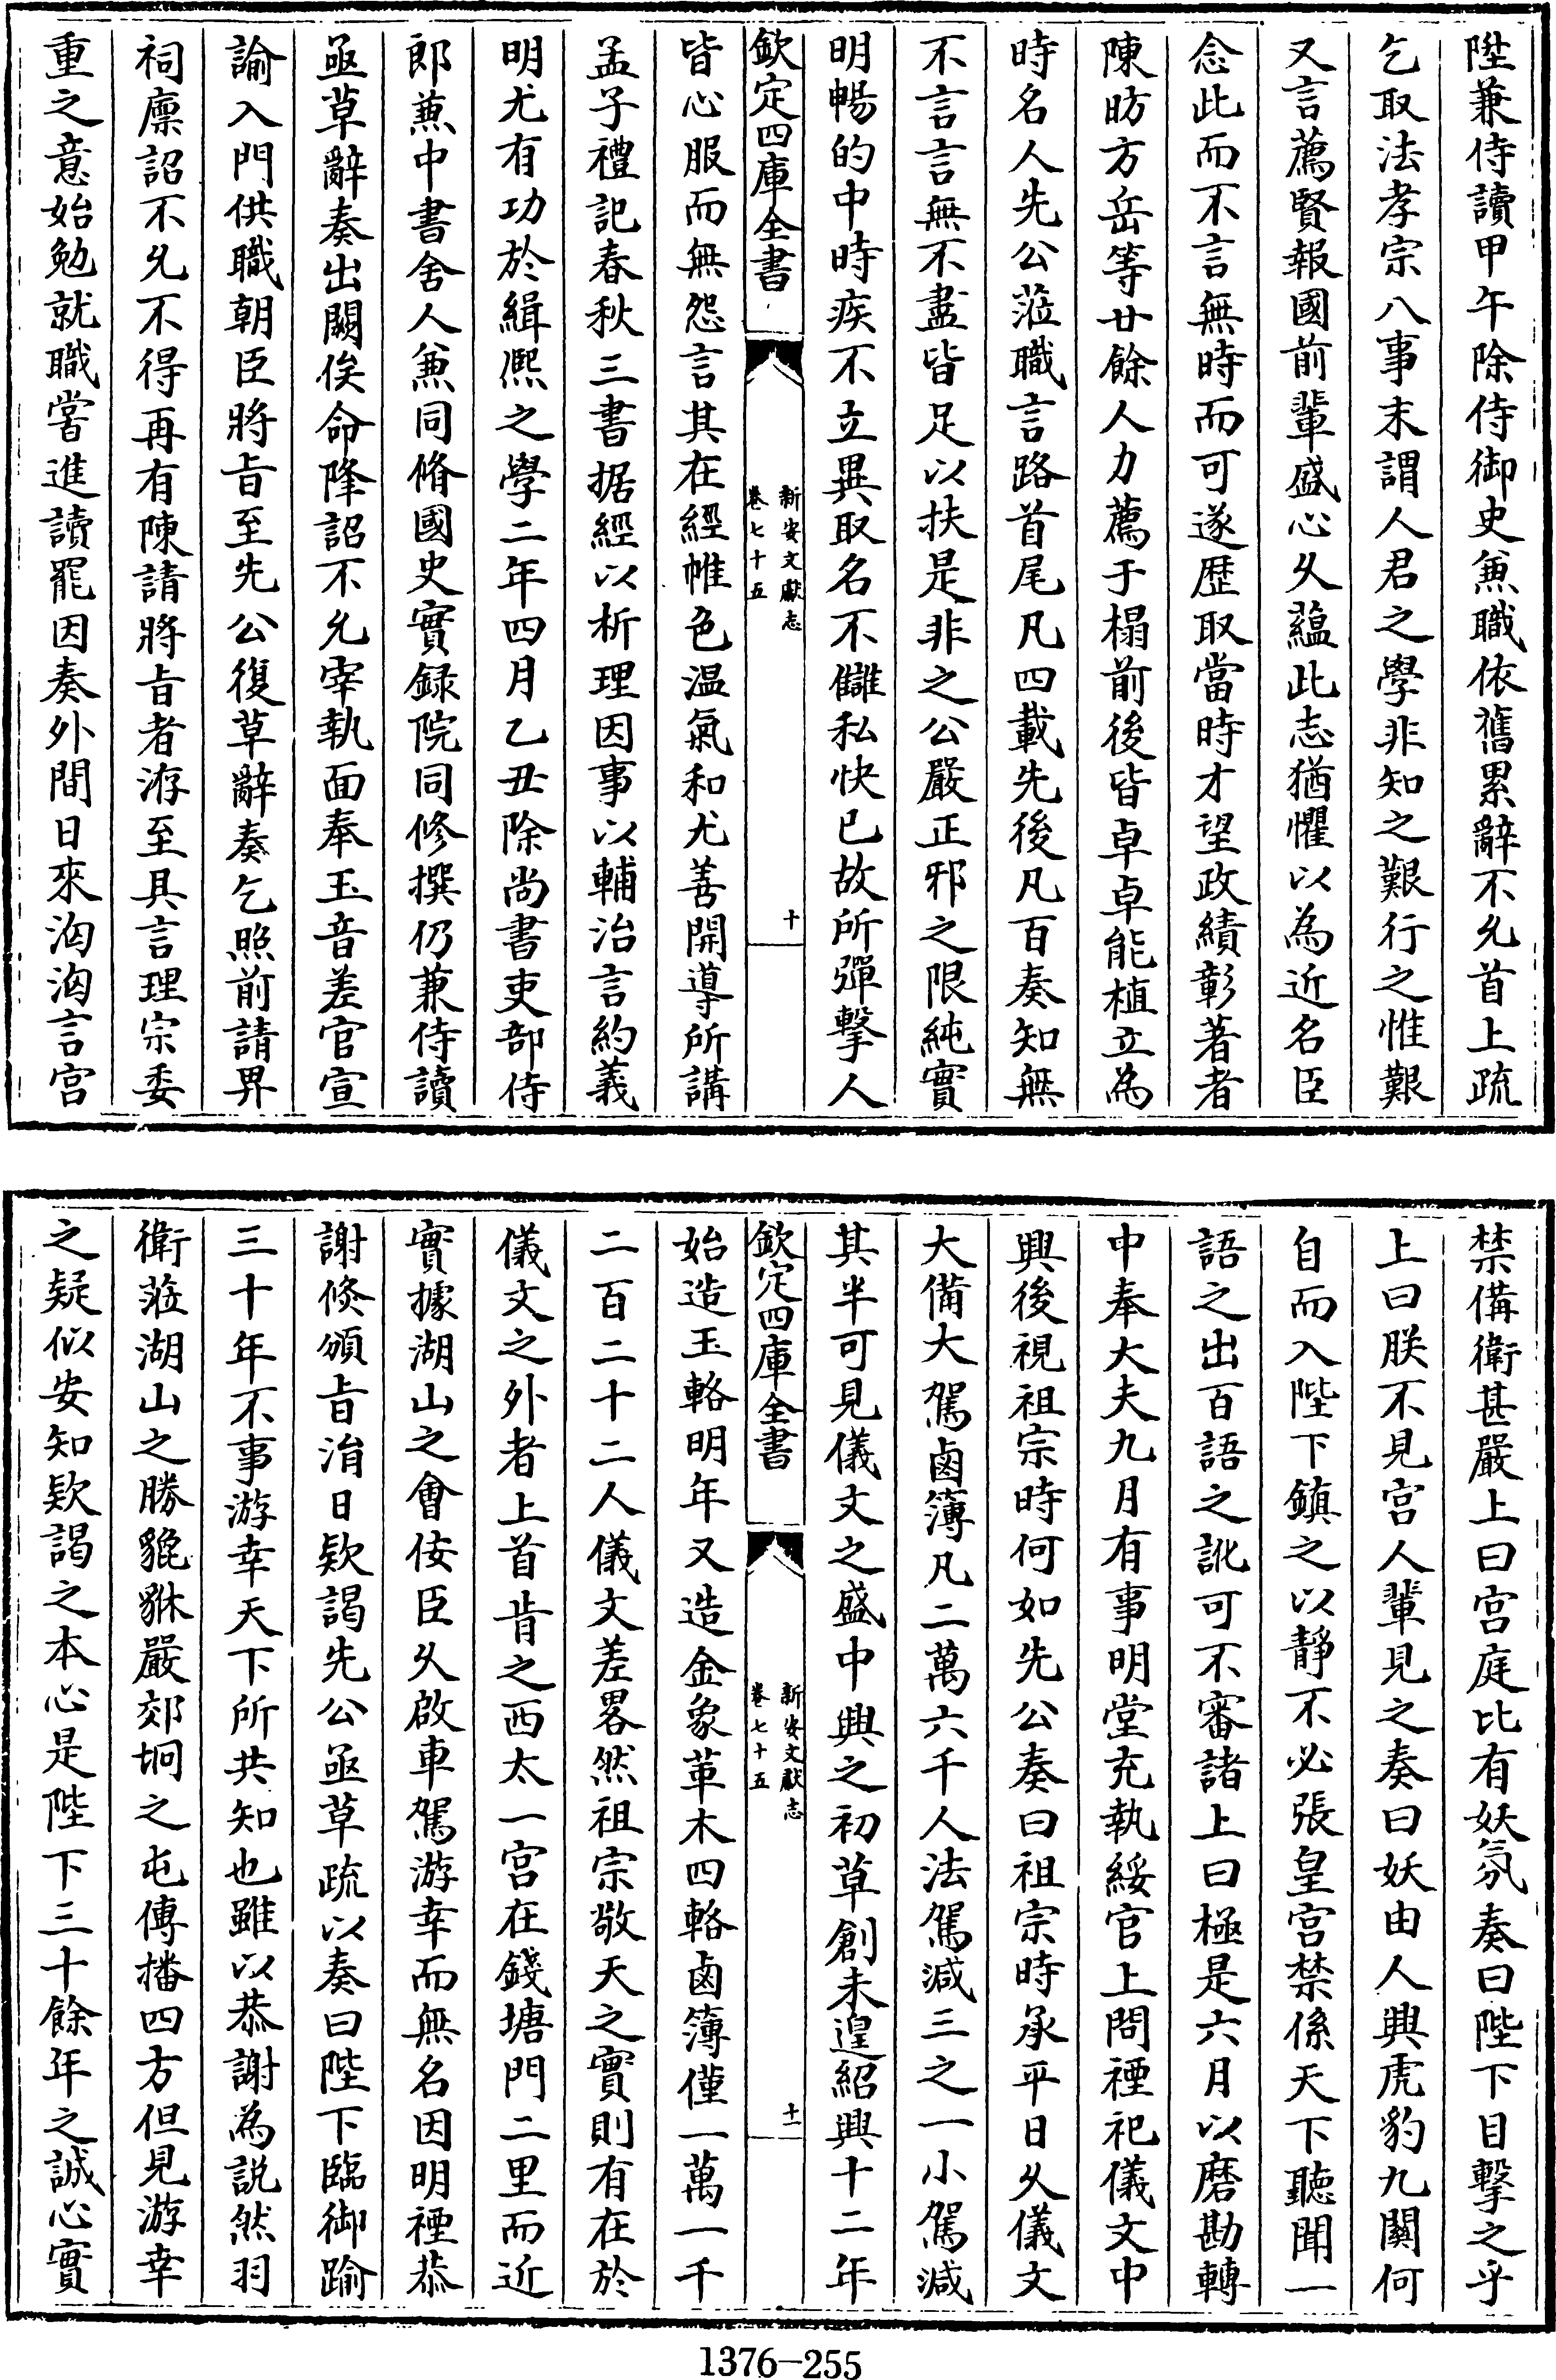 陞兼侍讀甲午除侍御史兼職依舊累辭不允首上疏
乞取法孝宗八事末謂人君之學非知之艱行之惟艱
又言薦賢報國前輩盛心久蘊此志猶懼以為近名臣
念此而不言無時而可遂歴取當時才望政績彰著者
陳昉方岳等廿餘人力薦于榻前後皆卓卓能植立為
時名人先公蒞職言路首尾凡四載先後凡百奏知無
不言言無不盡皆足以扶是非之公嚴正邪之限純實
明暢的中時疾不立異取名不讎私快已故所彈擊人
欽定四庫全書
新安文獻志
卷七十五
十
皆心服而無怨言其在經帷色温氣和尤善開導所講
孟子禮記春秋三書据經以析理因事以輔治言約義
明尤有功於緝熈之學二年四月乙丑除尚書吏部侍
郎兼中書舍人兼同脩國史實録院同修撰仍兼侍讀
亟草辭奏出關俟命降詔不允宰執面奉玉音差官宣
諭入門供職朝臣將旨至先公復草辭奏乞照前請畀
祠廪詔不允不得再有陳請將旨者洊至具言理宗委
重之意始勉就職嘗進讀罷因奏外間日來洶洶言宫
禁備衛甚嚴上曰宫庭比有妖氛奏曰陛下目撃之乎
上曰朕不見宫人輩見之奏曰妖由人興虎豹九關何
自而入陛下鎮之以靜不必張皇宫禁係天下聽聞一
語之出百語之訛可不審諸上曰極是六月以磨勘轉
中奉大夫九月有事明堂充執綏官上問禋祀儀文中
興後視祖宗時何如先公奏曰祖宗時承平日久儀文
大備大駕鹵簿凡二萬六千人法駕減三之一小駕減
其半可見儀文之盛中興之初草創未遑紹興十二年
欽定四庫全書
新安文獻志
卷七十五
十一
始造玉輅明年又造金象革木四輅鹵簿僅一萬一千
二百二十二人儀文差畧然祖宗敬天之實則有在於
儀文之外者上首肯之西太一宫在錢塘門二里而近
實據湖山之會佞臣久啟車駕游幸而無名因明禋恭
謝倐頒旨涓日欵謁先公亟草疏以奏曰陛下臨御踰
三十年不事游幸天下所共知也雖以恭謝為説然羽
衛蒞湖山之勝貔貅嚴郊坰之屯傳播四方但見游幸
之疑似安知欵謁之本心是陛下三十餘年之誠心實
1376-255